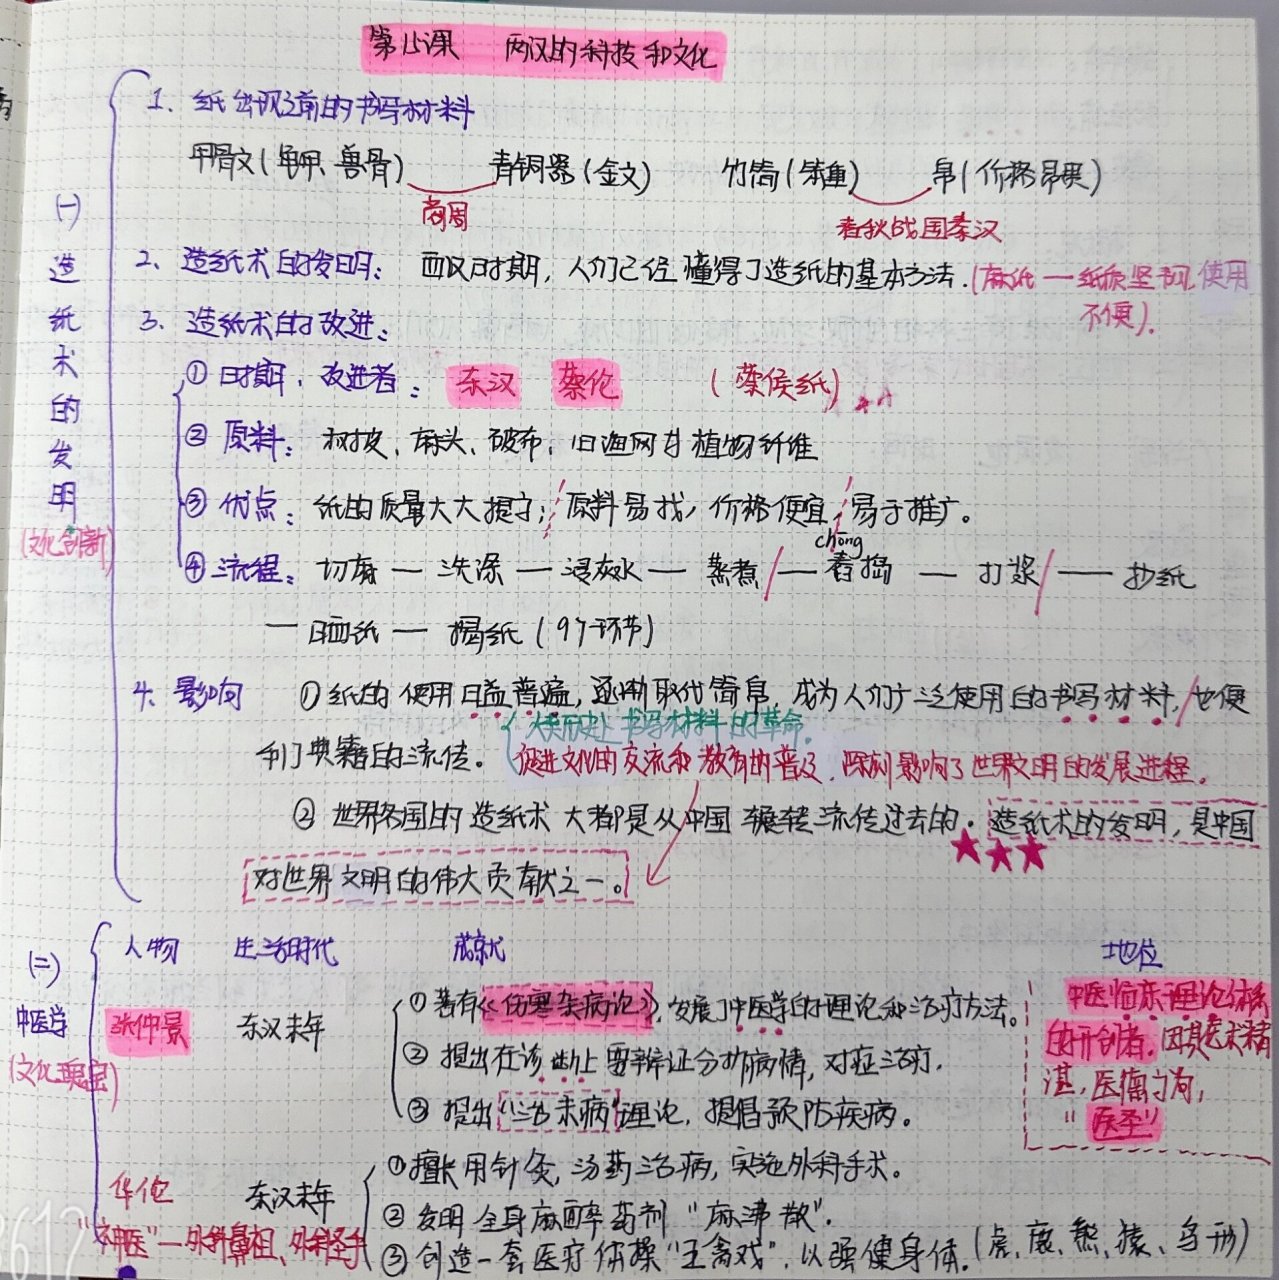 第15课 两汉的科技和文化
1、纸出现之前的书写材料
甲骨文(龟甲、兽骨) 青铜器(金文) 竹简(笨重) 帛(价格昂贵)
商周 春秋战国秦汉
(一)造纸术的发明
(文化创新)
2、造纸术的发明: 西汉时期,人们已经懂得了造纸的基本方法.(麻纸—纸质坚韧,使用
不便).
3、造纸术的改进:
①时期、改进者: 东汉 蔡伦 (蔡侯纸)
②原料: 树皮、麻头、破布、旧渔网等植物纤维
③优点: 纸的质量大大提高;原料易找,价格便宜,易于推广。
chōng
④流程: 切麻—洗涤—浸灰水—蒸煮—舂捣—打浆—抄纸
—晒纸—揭纸(9个环节)
4、影响 ①纸的使用日益普遍,逐渐取代简帛,成为人们广泛使用的书写材料,也便
人类历史上书写材料的革命.
利了典籍的流传。促进文化的交流和教育的普及,深刻影响了世界文明的发展进程.
②世界各国的造纸术大都是从中国辗转流传过去的.造纸术的发明,是中国
对世界文明的伟大贡献之一。
人物 生活时代 成就 地位
(二)中医学
(文化瑰宝)
张仲景 东汉末年
①著有《伤寒杂病论》,发展了中医学的理论和治疗方法。
②提出在诊断上要辨证分析病情,对症治疗.
③提出“治未病”理论,提倡预防疾病。
中医临床理论体系
的开创者.因其医术精
湛,医德高尚,
“医圣”
华佗 东汉末年
“神医”—外科鼻祖、外科圣手
①擅长用针灸,汤药治病,实施外科手术。
②发明全身麻醉药剂“麻沸散”.
③创造一套医疗体操“五禽戏”,以强健身体.(虎、鹿、熊、猿、鸟形)